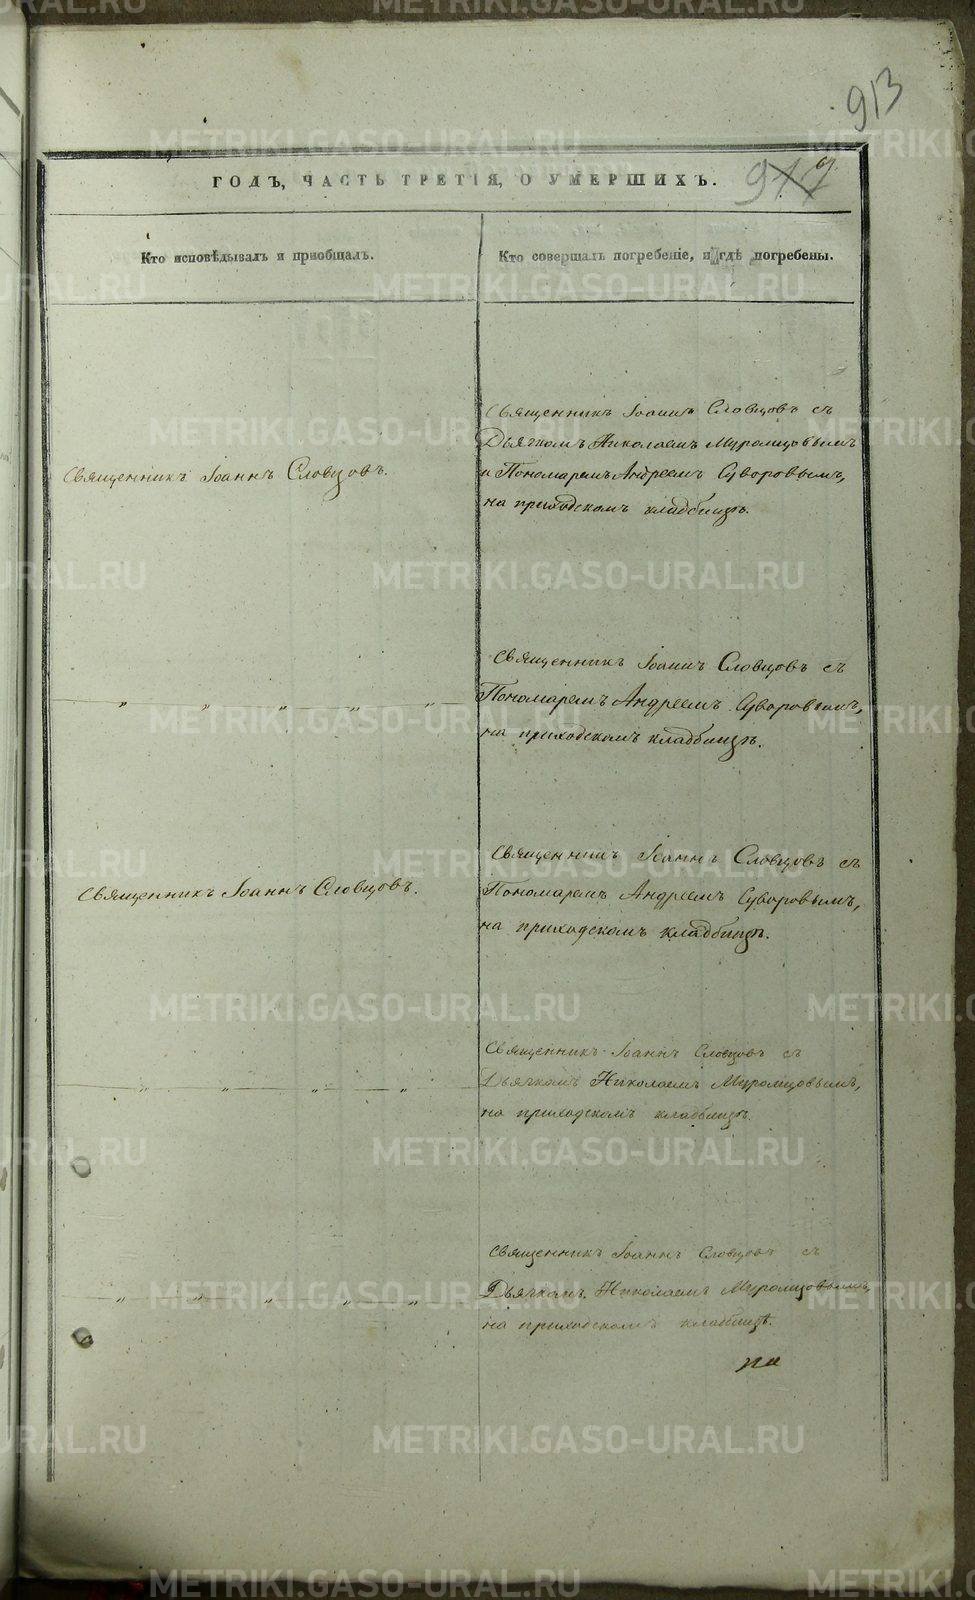 913
917
ГОДЪ, ЧАСТЬ ТРЕТІЯ, О УМЕРШИХЪ.
Кто исповѣдывалъ и пріобщалъ.
Кто совершалъ погребеніе, и гдѣ погребены.
Священникъ Іоаннъ Словцовъ.
Священникъ Іоаннъ Словцовъ съ
Дьячкомъ Николаемъ Муромцовымъ
и Пономаремъ Андреемъ Суворовымъ,
на приходскомъ кладбищѣ.
„ „ „ „ „
Священникъ Іоаннъ Словцовъ съ
Пономаремъ Андреемъ Суворовымъ,
на приходскомъ кладбищѣ.
Священникъ Іоаннъ Словцовъ.
Священникъ Іоаннъ Словцовъ съ
Пономаремъ Андреемъ Суворовымъ,
на приходскомъ кладбищѣ.
„ „ „ „
Священникъ Іоаннъ Словцовъ съ
Дьячкомъ Николаемъ Муромцовымъ,
на приходскомъ кладбищѣ.
„ „ „ „ „
Священникъ Іоаннъ Словцовъ съ
Дьячкомъ Николаемъ Муромцовымъ,
на приходскомъ кладбищѣ.
METRIKI.GASO-URAL.RU